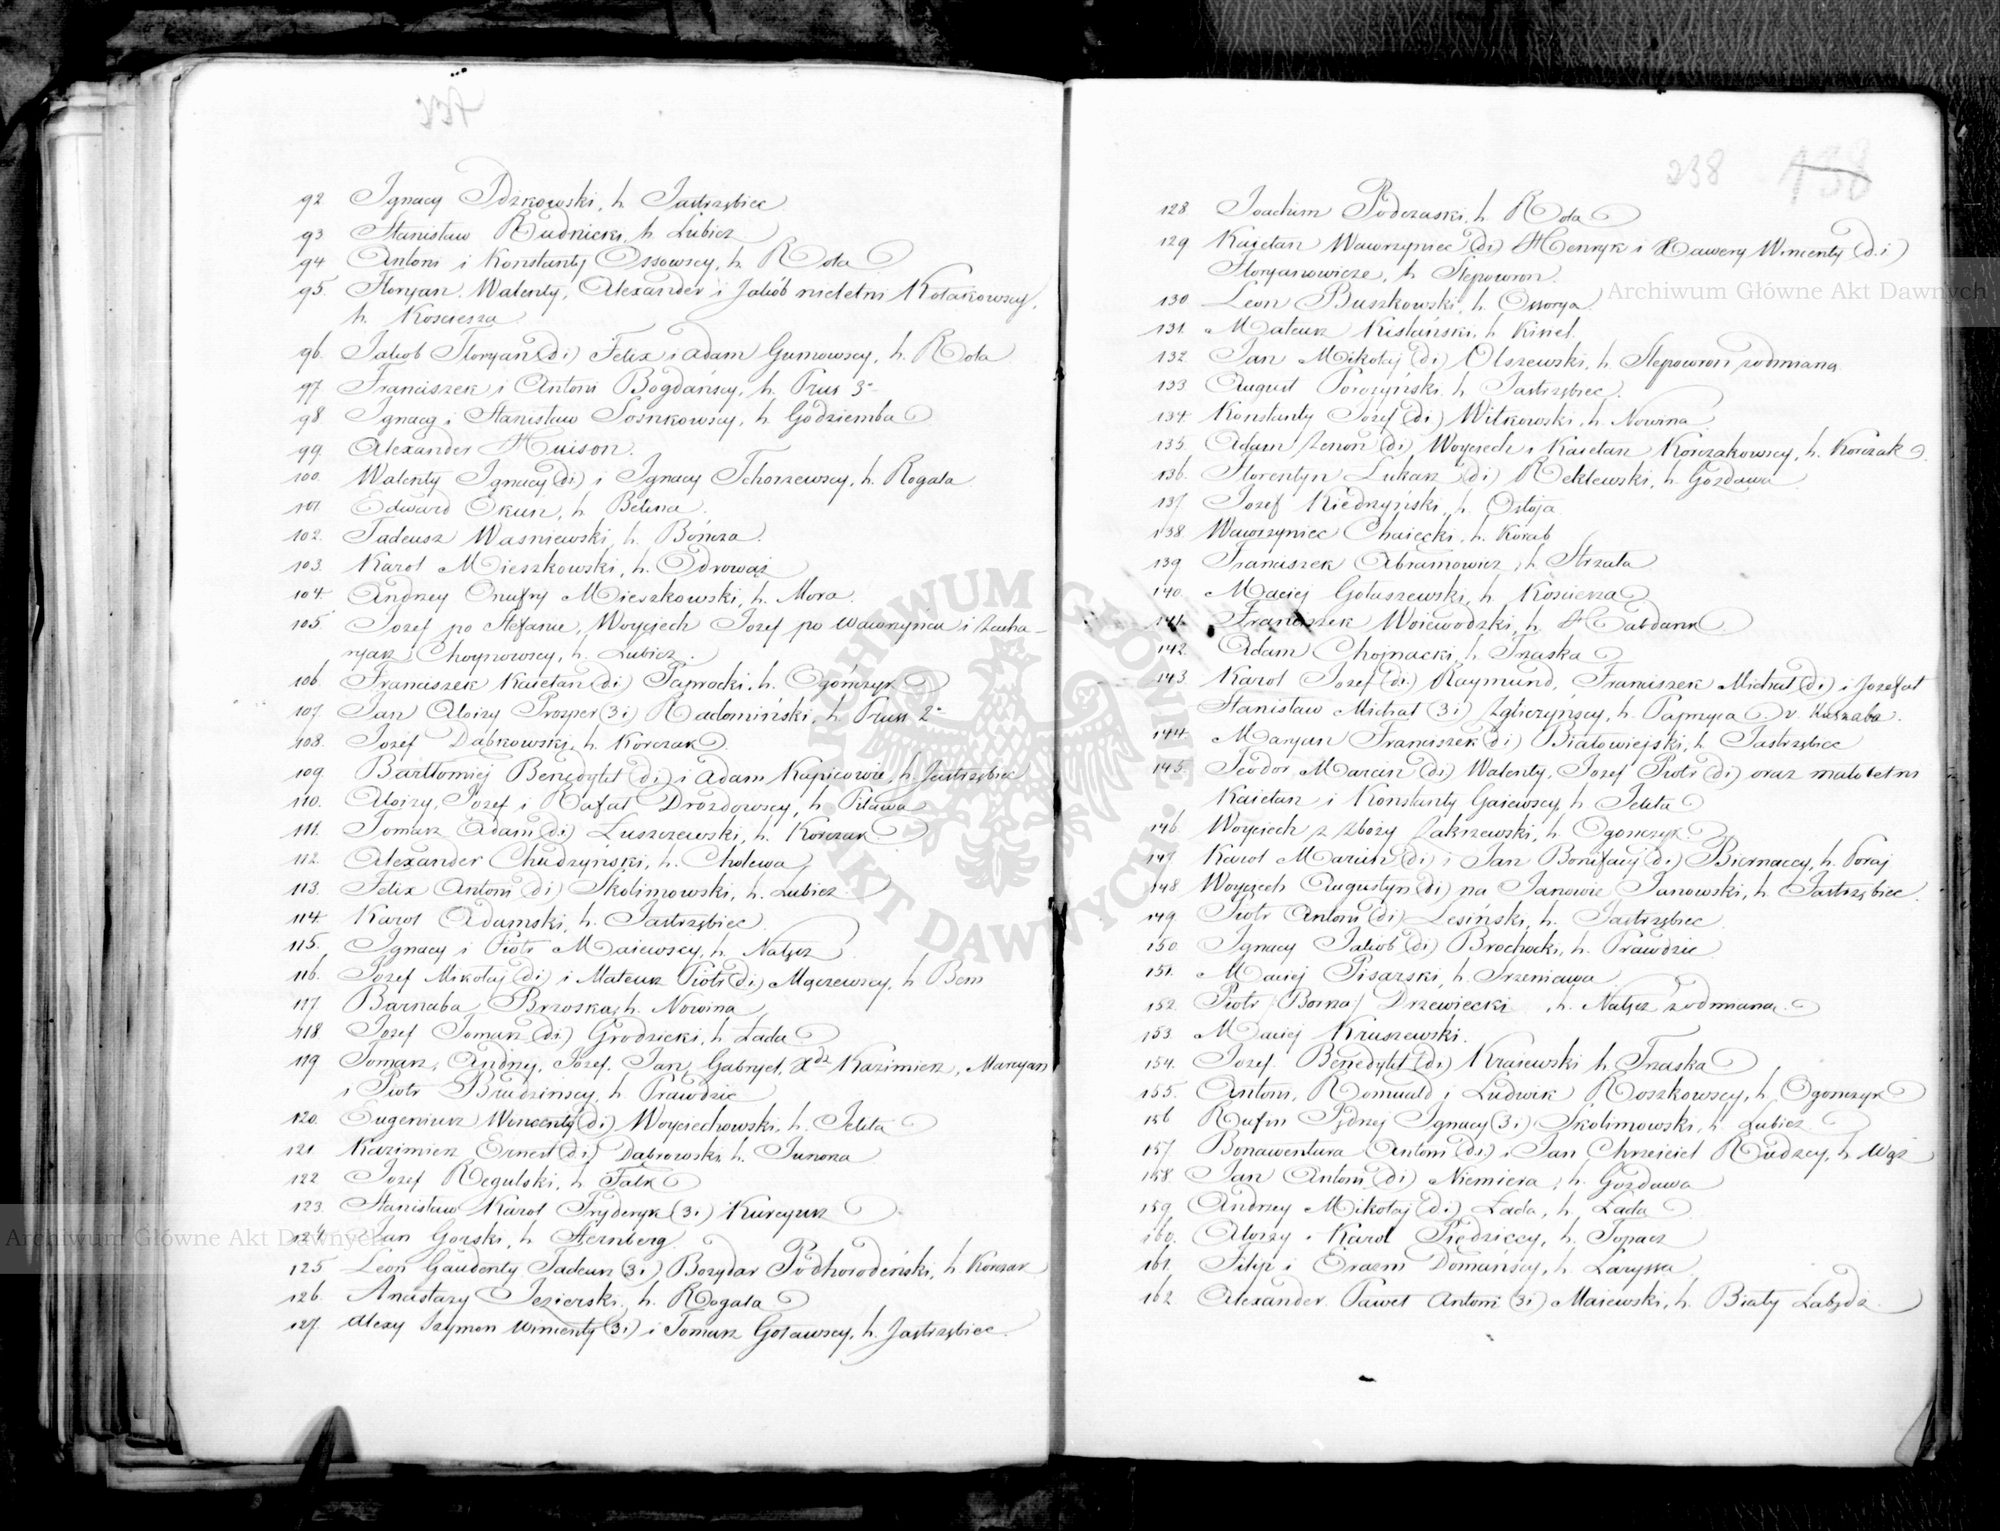 92 Ignacy Idzkowski, h. Jastrzębiec
93 Stanisław Rudnicki, h. Lubicz
94 Antoni i Konstanty Ossowscy, h. Rola
95. Floryan, Walenty, Alexander i Jakób nieletni Kołakowscy,
h. Kościesza
96. Jakob Floryan (di) Felix i Adam Gumowscy, h. Rola
97 Franciszek i Antoni Bogdańscy, h. Prus 3º
98 Ignacy i Stanisław Sosnkowscy, h. Godziemba
99. Alexander Huison.
100. Walenty Ignacy (di) i Ignacy Tchorzewscy, h. Rogala
101 Edward Okun, h. Belina.
102. Tadeusz Wasniewski, h. Bończa.
103. Karol Mieszkowski, h. Odrowąż
104. Andrzey Onufry Mieszkowski, h. Mora.
105 Jozef po Stefanie, Woyciech Jozef po Wawrzyńcu i Zacha-
ryasz Choynowscy, h. Lubicz.
106. Franciszek Kaietan (di) Paprocki, h. Ogończyk
107. Jan Aloizy Prosper (3i) Radomiński, h. Prus 2º
108. Jozef Dąbkowski, h. Korczak
109. Bartłomiej Benedykt (di) i Adam Kapicowie, h. Jastrzębiec
110. Aloizy, Jozef i Rafał Drozdowscy, h. Pilawa
111. Tomasz Adam (di) Łuszczewski, h. Korczak
112. Alexander Chudzyński, h. Cholewa
113. Felix Antoni (di) Skolimowski, h. Lubicz.
114. Karol Adamski, h. Jastrzębiec.
115. Ignacy i Piotr Maiewscy, h. Nałęcz
116. Jozef Mikołaj (di) i Mateusz Piotr (di) Mączewscy, h. Bem
117 Barnaba Brzoska, h. Nowina
118 Jozef Tomasz (di) Grodzicki, h. Łada
119 Tomasz, Andrzy, Jozef, Jan, Gabryel, Xdz Kazimierz, Maryan
i Piotr Brudzińscy, h. Prawdzic
120. Eugeniusz Wincenty (di) Woyciechowski, h. Jelita
121. Kazimierz Ernest (di) Dąbrowski, h. Junona
122 Jozef Regulski, h. Falk
123. Stanisław Karol Fryderyk (3i) Kurcyusz
124. Jan Gorski, h. Sternberg.
125 Leon Gaudenty Tadeusz (3i) Bozydar Podhorodeński, h. Korczak
126. Anastazy Jezierski, h. Rogala
127. Alexy Szymon Wincenty (3i) i Tomasz Goławscy, h. Jastrzębiec.
238 138
128 Joachim Podczaski, h. Rola
129 Kaietan Wawrzyniec (di) Henryk i Xawery Wincenty (di)
Floryanowicze, h. Slepowron.
130. Leon Buszkowski, h. Ossorya.
131. Mateusz Kislański, h. Kisiel.
132. Jan Mikołaj (di) Olszewski, h. Slepowron zodmianą
133 August Poroszyński, h. Jastrzębiec.
134. Konstanty Jozef (di) Witkowski, h. Nowina.
135. Adam Zenon (di) Woyciech i Kaietan Korczakowscy, h. Korczak
136. Florentyn Lukasz (di) Reklewski, h. Gozdawa
137. Jozef Kiedrzyński, h. Ostoja.
138. Wawrzyniec Chaiecki, h. Korab
139. Franciszek Abramowicz, h. Strzała
140. Maciej Gołaszewski, h. Kościesza
141. Franciszek Woiewodzki, h. Habdank
142. Adam Chojnacki, h. Trzaska
143. Karol Jozef (di) Raymund, Franciszek Michał (di) i Jozefat
Stanisław Michał (3i) Zgliczyńscy, h. Paprzyca v. Kuszaba.
144. Maryan Franciszek (di) Białowiejski, h. Jastrzębiec
145. Teodor Marcin (di) Walenty, Jozef Piotr (di) oraz małoletni
Kaietan i Konstanty Gaiewscy, h. Jelita
146. Woyciech z Zboży Zakrzewski, h. Ogończyk
147. Karol Marcin (di) i Jan Bonifacy (di) Biernaccy, h. Poraj
148. Woyciech Augustyn (di) na Janowie Janowski, h. Jastrzębiec.
149. Piotr Antoni (di) Lesiński, h. Jastrzębiec
150. Ignacy Jakób (di) Brochocki, h. Prawdzic
151. Maciej Pisarski, h. Srzeniawa
152. Piotr (Borna) Drzewiecki, h. Nałęcz zodmianą.
153. Maciej Kruszewski.
154. Jozef Benedykt (di) Kraiewski h. Trzaska
155. Antoni, Romuald i Ludwik Roszkowscy, h. Ogończyk
156 Rufin Jędrzej Ignacy (3i) Skolimowski, h. Lubicz
157. Bonawentura Antoni (di) i Jan Chrzciciel Rudzcy, h. Wąż
158. Jan Antoni (di) Niemiera, h. Gozdawa
159. Andrzey Mikołaj (di) Łada, h. Łada
160. Aloizy i Karol Piędziccy, h. Topacz
161. Filip i Erazm Domańscy, h. Laryssa.
162. Alexander Paweł Antoni (3i) Maiewski, h. Biały Łabędź.
Archiwum Główne Akt Dawnych
Archiwum Główne Akt Dawnych
ARCHIWUM GŁÓWNE AKT DAWNYCH